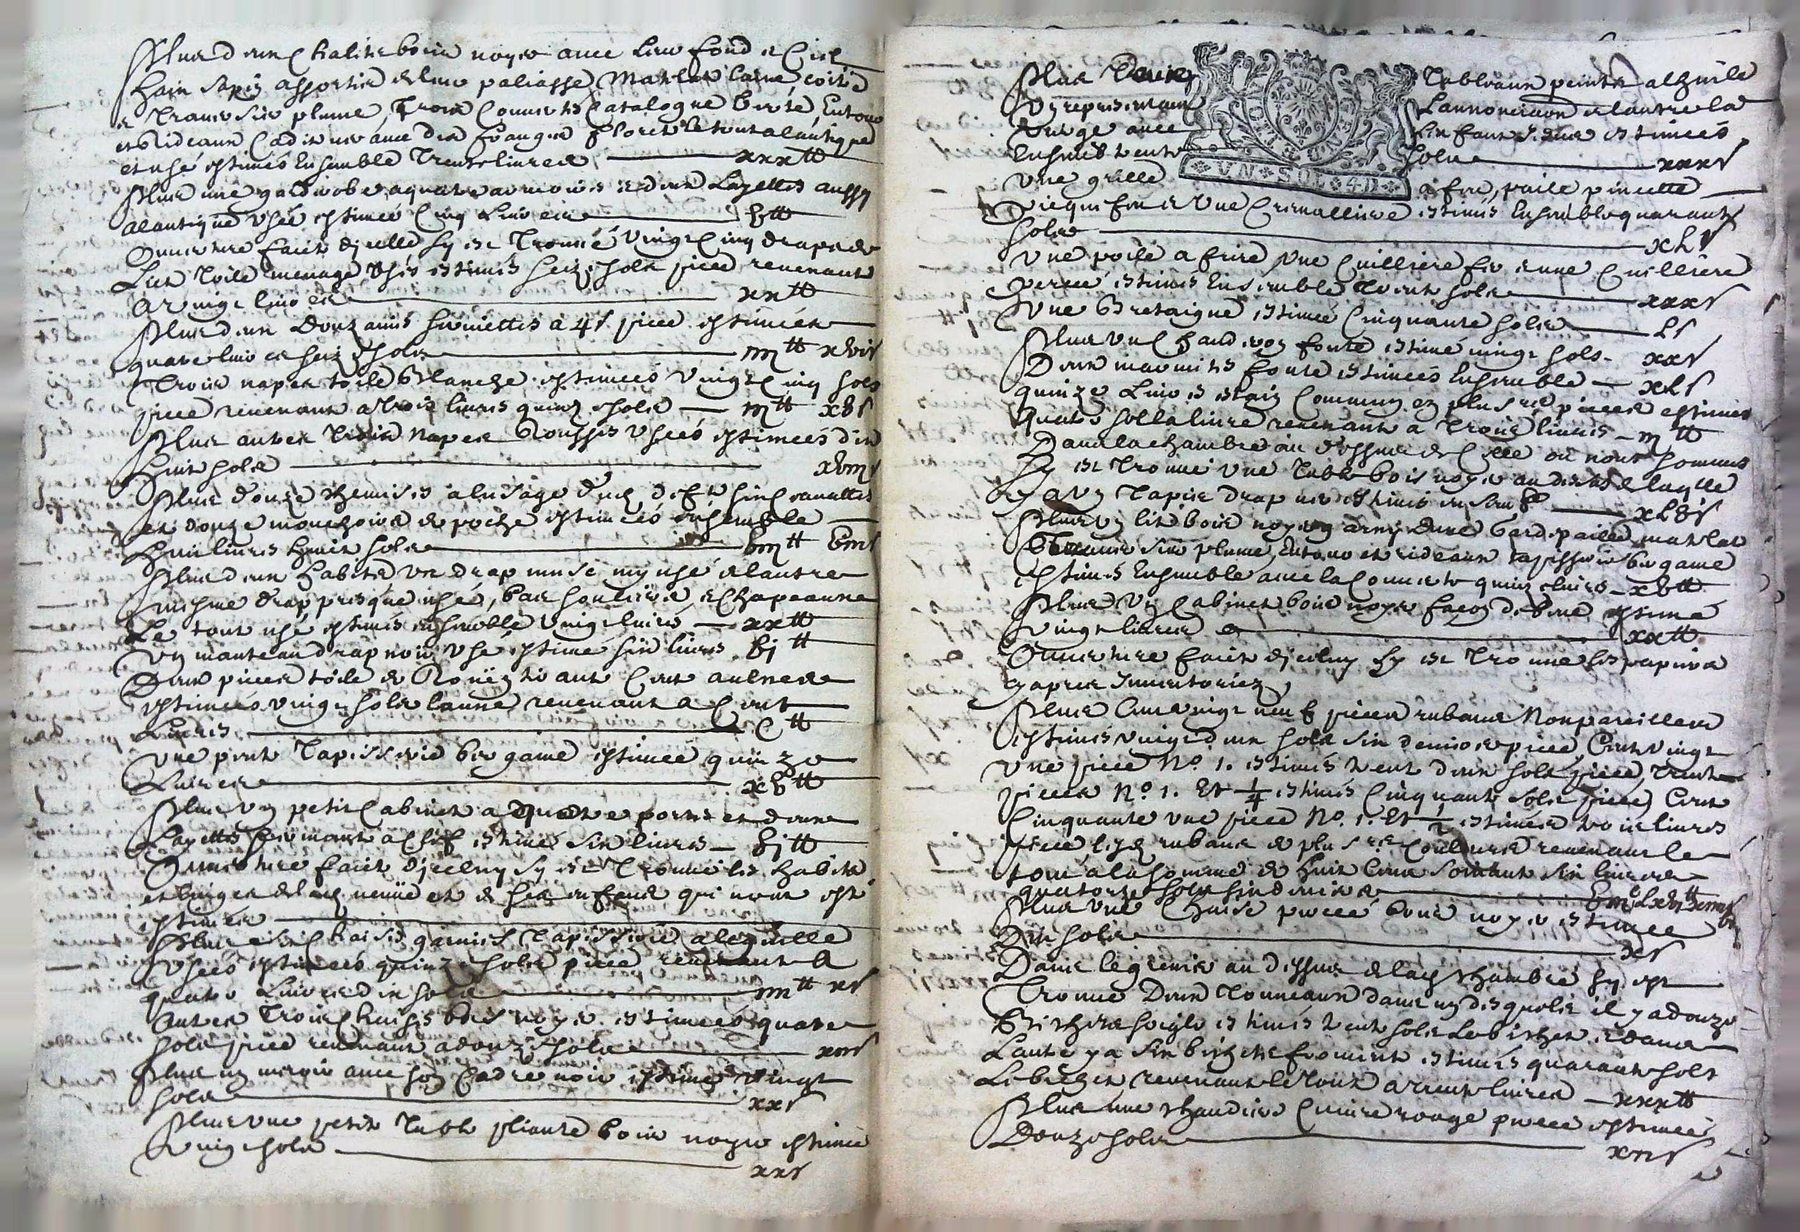 Plus deux chalits bois noyer avec leur fond et ciel
bois sapin assortis de leur paliasse, Matelat laine, coitte
et Traversier plume, Trois Couvertes Catalogne, boité, Entour
et Rideaux Cadis avec des franges floret le tout a lantique
et usé estimés Ensemble Trente livres xxx tt
Plus une garderobe a quatre armoires et deux Layettes aussy
a lantique usée estimée Cinq Livres b tt
Ouverture faite d'jcelle sy est Trouvé vingt Cinq drapts de
Lict Toile menage usés estimés seize sols piece revenant
a vingt livres xx tt
Plus deux Douzaines serviettes a 4 s piece estimées
quatre livres seize sols iiij tt xvi s
Trois napes toile blanche estimées vingt Cinq sols
piece revenant a trois livres quinze sols iij tt xb s
Plus autres Trois Napes Rousses usées estimées dix
huit sols xbiij s
Plus douze chemises a lusage dud. deft sinq cravattes
et douze mouchoirs de poche estimés ensemble
huit livres huit sols biij tt biij s
Plus deux habits un drap muse my usé et lautre
mesme drap presque usé, bas souliers et chapeaux
Le tout usé estimés ensemble vingt livres xx tt
Un manteau drap noir usé estimé six livres bj tt
Deux pieces toile de Roüen tirant Cent aulnes
estimées vingt sols laune revenant a Cent
Livres C tt
Une pente Tapisserie bergame estimée quinze
Livres xb tt
Plus un petit Cabinet a quatre portes et deux
Layettes fermant a Clef estimé six livres bj tt
Ouverture faite d'jceluy sy est Trouvé les habits
et linges de lad. veuve et de ses enfans qui n'ont esté
estimés
Plus six chaises garnies Tapisserie a leguille
usées estimées quinze sols piece revenant a
quatre Livres dix sols iiij tt x s
Autres Trois Chaises bois noyer estimées quatre
sols piece revenant a douze sols xij s
Plus un miroir avec son Cadre noir estimé vingt
sols xx s
Plus une petite Table pliante bois noyer estimée
vingt sols xx s
Plus Deux Tableaux peints a lhuile
Un representant Lannonciation et lautre la
vierge avec son Enfant Jesus estimés
Ensemble trente sols xxx s
GENER
VN · SOL · 4 D
Une grille a feu, paile pincette
picque feu et Une Cremalliere estimés Ensemble quarante
sols xL s
Une poile a frire Une Cuilliere fer et une Cuilliere
percée estimés Ensemble Trente sols xxx s
Une Bretaigne estimée Cinquante sols L s
Plus un Chauderon fonte estimé vingt sols xx s
Deux marmites fonte estimées Ensemble xL s
quinze Livres estain Commun en plusrs pieces estimées
quatre sols la livre revenant a Trois livres iij tt
Dans la chambre au dessus de Celle ou nous sommes
sy est Trouvé une Table bois noyer au dessus de laquelle
y a un Tapis drap usé estimés ensemb. xLb s
Plus un lit bois noyer garny d'une garde paille, matelat
Traversier plume, Entour et rideaux tapisserie bergame
estimés Ensemble avec la Couverte quinze livres xb tt
Plus Un Cabinet bois noyer façon debene estimé
vingt livres xx tt
Ouverture faite d'jceluy sy est Trouvé les papiers
y apres Inventoriez,
Plus Cent vingt neuf pieces rubans Nompareilles
estimés vingt deux sols six deniers piece, Cent vingt
une piece No. 1. estimés trente deux sols piece, Trente
pieces No. 1. Et 1/4 estimés Cinquante sols piece, Cent
Cinquante une piece No. 1. Et 1/2 estimées trois livres
piece lesd. rubans de plusrs Couleurs revenant le
tout a la somme de huit Cens soixante six livres
quatorze sols six deniers
Plus une Chaise percée bois noyer estimée
Dix sols x s
Dans le grenier au dessus de lad. chambre sy est
Trouvé Deux Tonneaux dans un desquels il y a douze
bichets seigle estimés trente sols Le bichet et dans
Lautre y a six bichets froment estimés quarante sols
Le bichet revenant le Tout a trente livres xxx tt
Plus une chaudiere Cuivre rouge percée estimée
Douze sols xij s